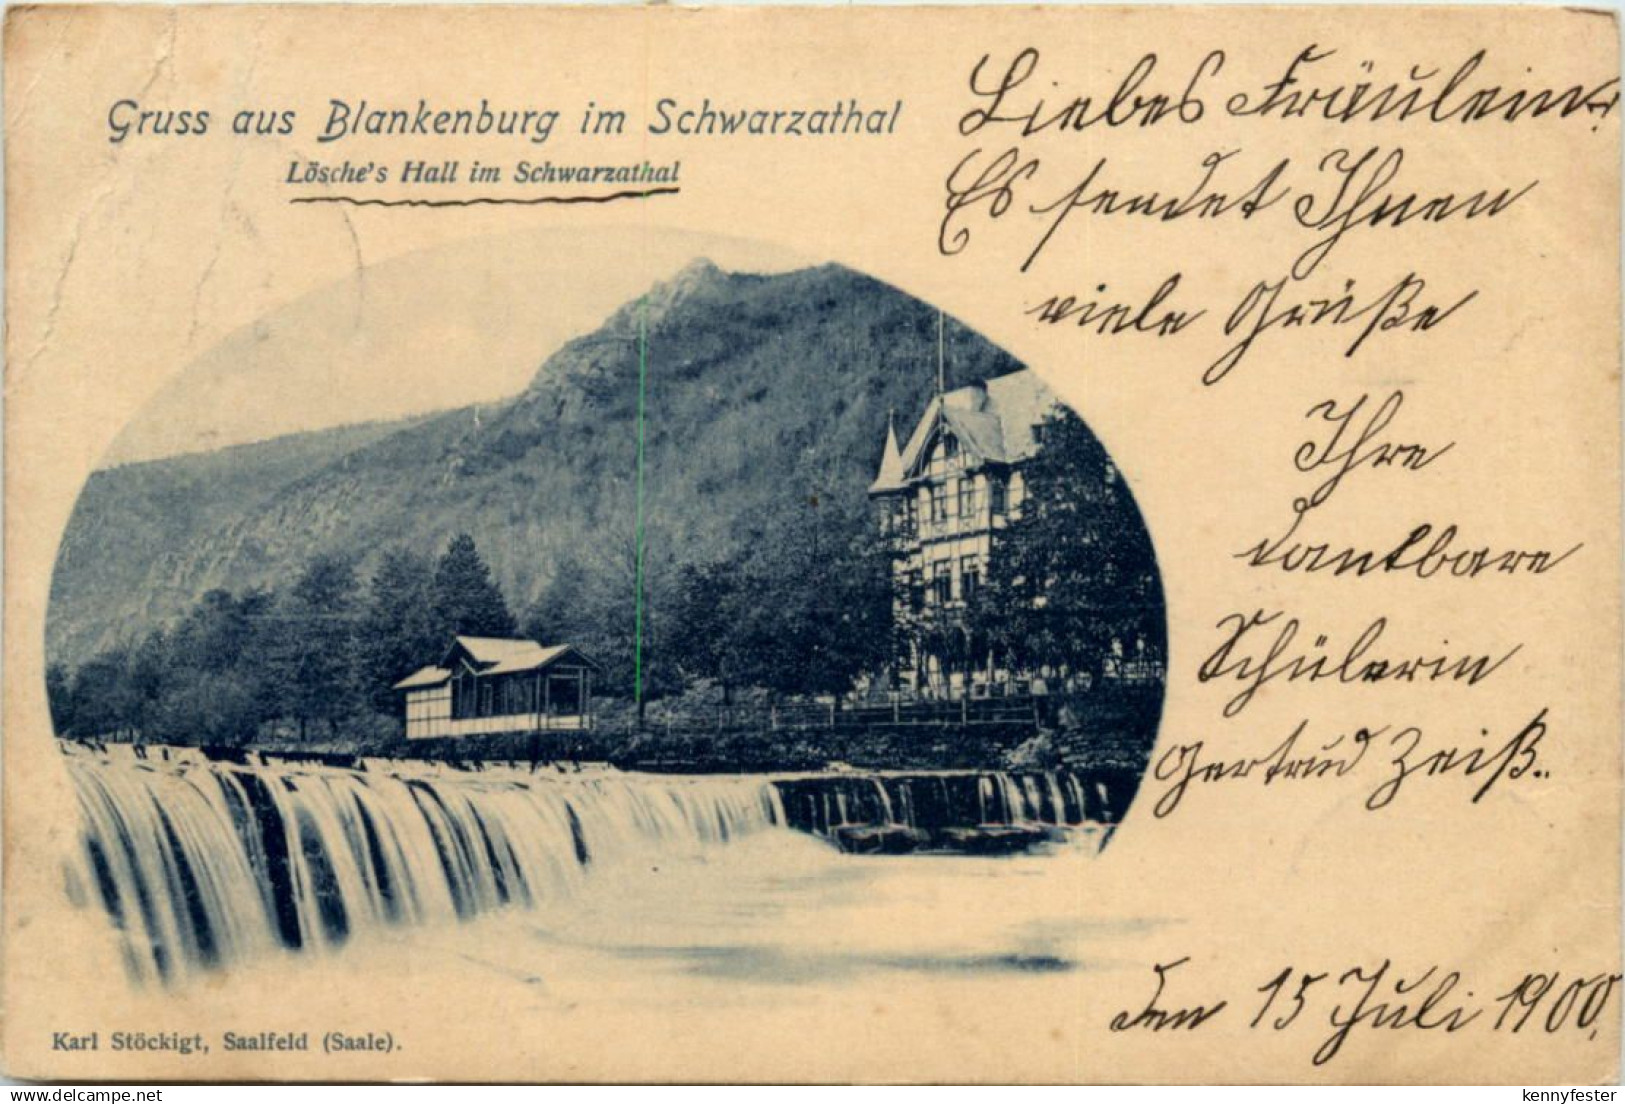 Gruss aus Blankenburg im Schwarzathal
Lösche's Hall im Schwarzathal
Liebes Fräulein!
Es sendet Ihnen
viele Grüße
Ihre
dankbare
Schülerin
Gertrud Zeiß.
den 15 Juli 1900.
Karl Stöckigt, Saalfeld (Saale).
delcampe.net
kennyfester